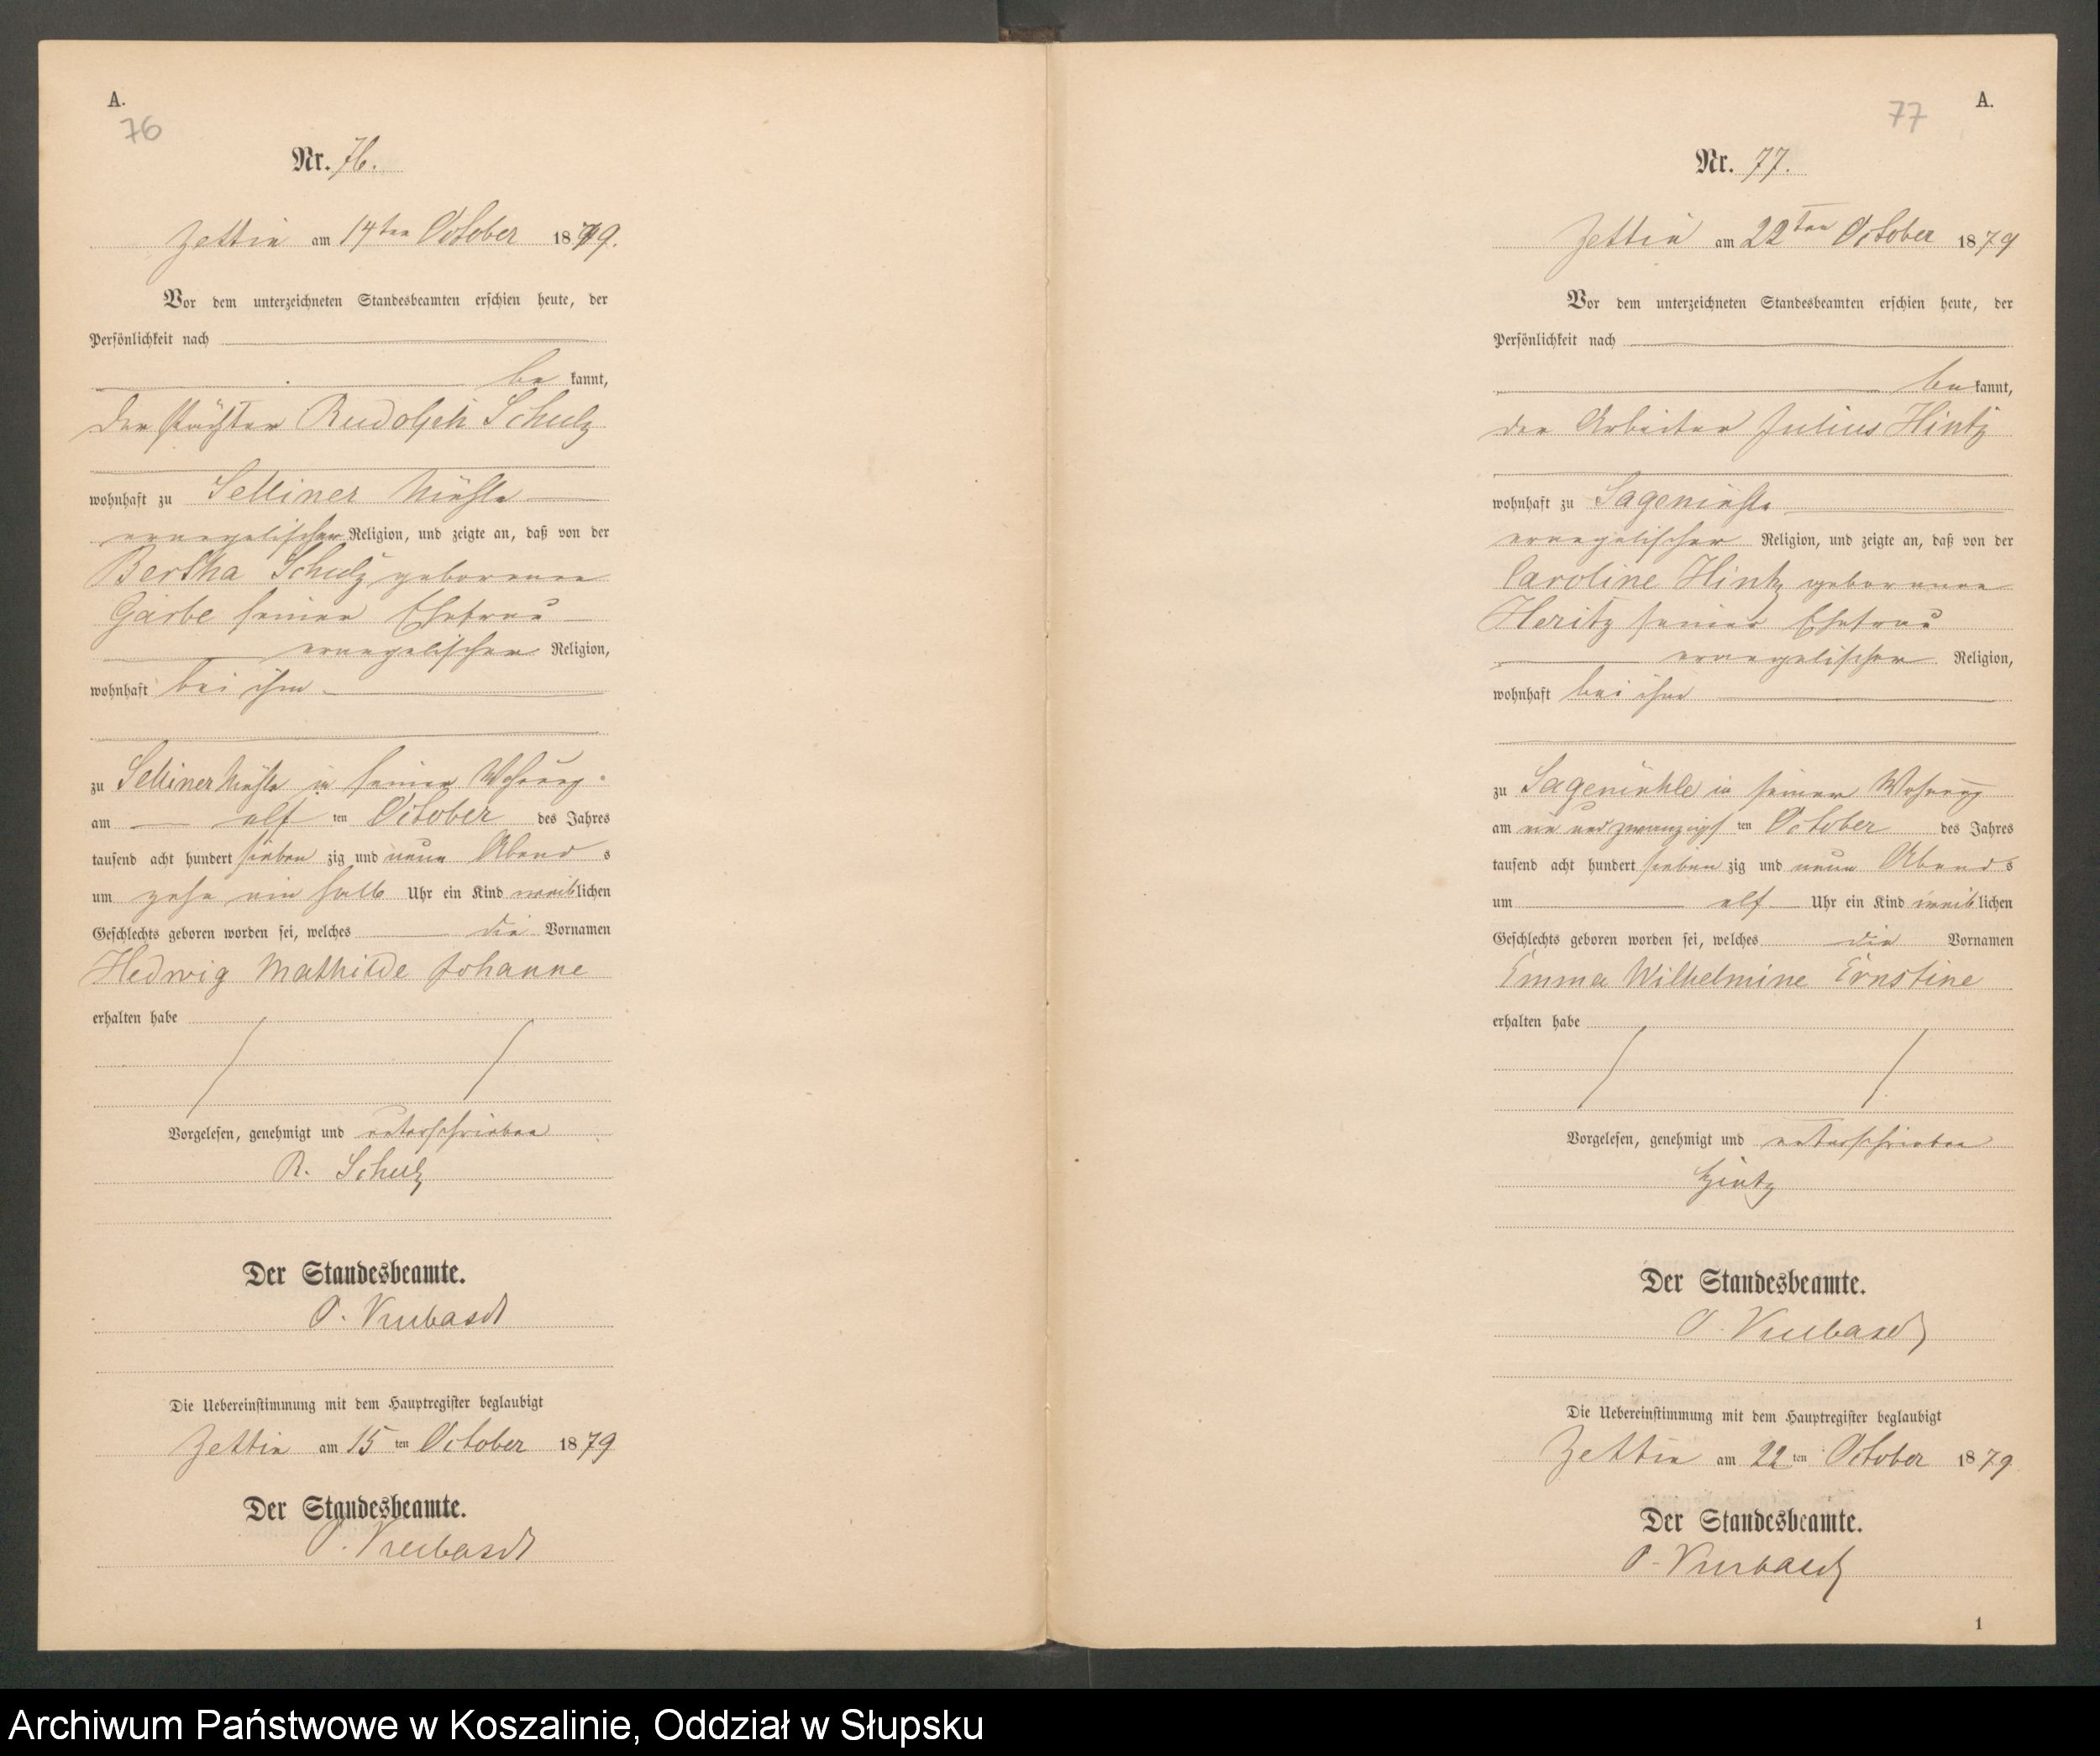 A.
76
Nr. 76.
Zettin am 14ten October 1879.
Vor dem unterzeichneten Standesbeamten erschien heute, der
Persönlichkeit nach
be kannt,
der Pächter Rudolph Schulz
wohnhaft zu Selliner Mühle
evangelischer Religion, und zeigte an, daß von der
Bertha Schulz geborenen
Garbe seiner Ehefrau
evangelischer Religion,
wohnhaft bei ihm
zu Selliner Mühle in seiner Wohnung
am elf ten October des Jahres
tausend acht hundert sieben zig und neun Abend s
um zehn ein halb Uhr ein Kind weiblichen
Geschlechts geboren worden sei, welches die Vornamen
Hedwig Mathilde Johanne
erhalten habe
Vorgelesen, genehmigt und unterschrieben
R. Schulz
Der Standesbeamte.
Die Uebereinstimmung mit dem Hauptregister beglaubigt
Zettin am 15 ten October 1879
Der Standesbeamte.
A.
77
Nr. 77.
Zettin am 22ten October 1879
Vor dem unterzeichneten Standesbeamten erschien heute, der
Persönlichkeit nach
be kannt,
der Arbeiter Julius Hintz
wohnhaft zu Sagemühle
evangelischer Religion, und zeigte an, daß von der
Caroline Hintz geborenen
Heritz seiner Ehefrau
evangelischer Religion,
wohnhaft bei ihm
zu Sagemühle in seiner Wohnung
am ein und zwanzigs ten October des Jahres
tausend acht hundert sieben zig und neun Abend s
um elf Uhr ein Kind weiblichen
Geschlechts geboren worden sei, welches die Vornamen
Emma Wilhelmine Ernstine
erhalten habe
Vorgelesen, genehmigt und unterschrieben
Hintz
Der Standesbeamte.
Die Uebereinstimmung mit dem Hauptregister beglaubigt
Zettin am 22 ten October 1879
Der Standesbeamte.
1
Archiwum Państwowe w Koszalinie, Oddział w Słupsku